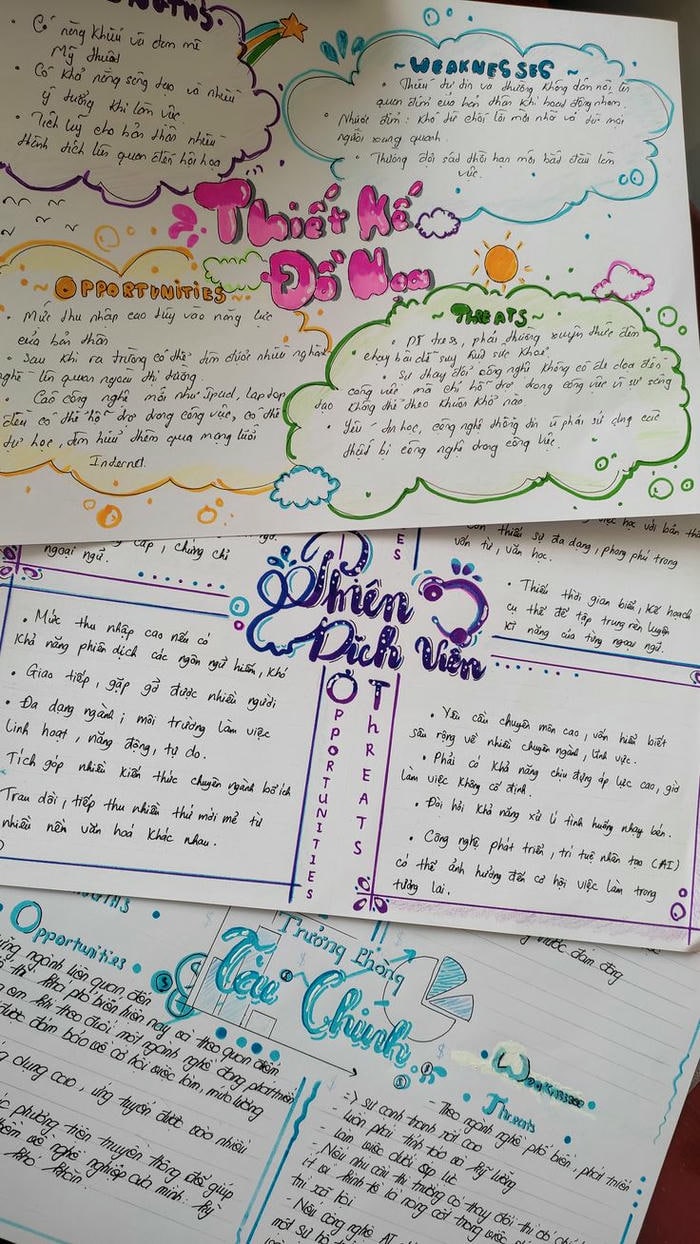 • Có năng khiếu và đam mê
Mỹ thuật
• Có khả năng sáng tạo và nhiều
ý tưởng khi làm việc.
• Tích lũy cho bản thân nhiều
thành tích liên quan đến hội họa
~WEAKNESSES~
• Thiếu tự tin và thường không dám nói lên
quan điểm của bản thân khi hoạt động nhóm.
• Nhược điểm: khó từ chối lời mời nhờ vả từ mọi
người xung quanh.
• Thường đợi sát thời hạn mới bắt đầu làm
việc.
Thiết Kế
Đồ Họa
~OPPORTUNITIES~
• Mức thu nhập cao tùy vào năng lực
của bản thân
• Sau khi ra trường có thể tìm được nhiều nghề
liên quan ngoài thị trường.
• Các công nghệ mới như Ipad, laptop
đều có thể hỗ trợ trong công việc, có thể
tự học, tìm hiểu thêm qua mạng lưới
Internet.
~THREATS~
• Bị stress, phải thường xuyên thức đêm
chạy bài để suy kiệt sức khỏe.
• Sự thay đổi công nghệ không có đe dọa đến
công việc mà chỉ hỗ trợ trong công việc vì sự sáng
tạo không thể theo khuôn khổ nào.
• Yếu tin học, công nghệ thông tin vì phải sử dụng các
thiết bị công nghệ trong công việc.
cấp, chứng chỉ
ngoại ngữ.
thiếu sự đa dạng, phong phú trong
vốn từ, văn học.
• Thiếu thời gian biểu, kế hoạch
cụ thể để tập trung rèn luyện
kĩ năng của từng ngoại ngữ.
Phiên
Dịch Viên
• Mức thu nhập cao nếu có
khả năng phiên dịch các ngôn ngữ hiếm, khó
• Giao tiếp, gặp gỡ được nhiều người
• Đa dạng ngành; môi trường làm việc
linh hoạt, năng động, tự do.
Tích góp nhiều kiến thức chuyên ngành bổ ích
Trau dồi, tiếp thu nhiều thứ mới mẻ từ
nhiều nền văn hoá khác nhau.
OPPORTUNITIES
THREATS
• Yêu cầu chuyên môn cao, vốn hiểu biết
sâu rộng về nhiều chuyên ngành, lĩnh vực.
• Phải có khả năng chịu đựng áp lực cao, giờ
làm việc không cố định.
• Đòi hỏi khả năng xử lí tình huống nhạy bén.
• Công nghệ phát triển, trí tuệ nhân tạo (AI)
có thể ảnh hưởng đến cơ hội việc làm trong
tương lai.
Trưởng Phòng
Tài Chính
• Opportunities •
ngành liên quan đến
phổ biến hiện nay và theo quan điểm
em khi theo đuổi một ngành nghề đang phát triển
được đảm bảo về cơ hội việc làm, mức lương
dụng cao, ứng tuyển được vào nhiều
phương tiện truyền thông để giúp
thêm về nghề nghiệp của mình.
khó khăn.
trước đám đông
• Weaknesses •
• Threats •
- Theo ngành nghề phổ biến, phát triển
=> sự cạnh tranh rất cao
- luôn phải tỉnh táo và kỹ lưỡng
- làm việc dưới áp lực
- Nếu nhu cầu thị trường có thay đổi thì
kinh tế là nòng cốt trong
xã hội
- Nếu công nghệ AI
một sự